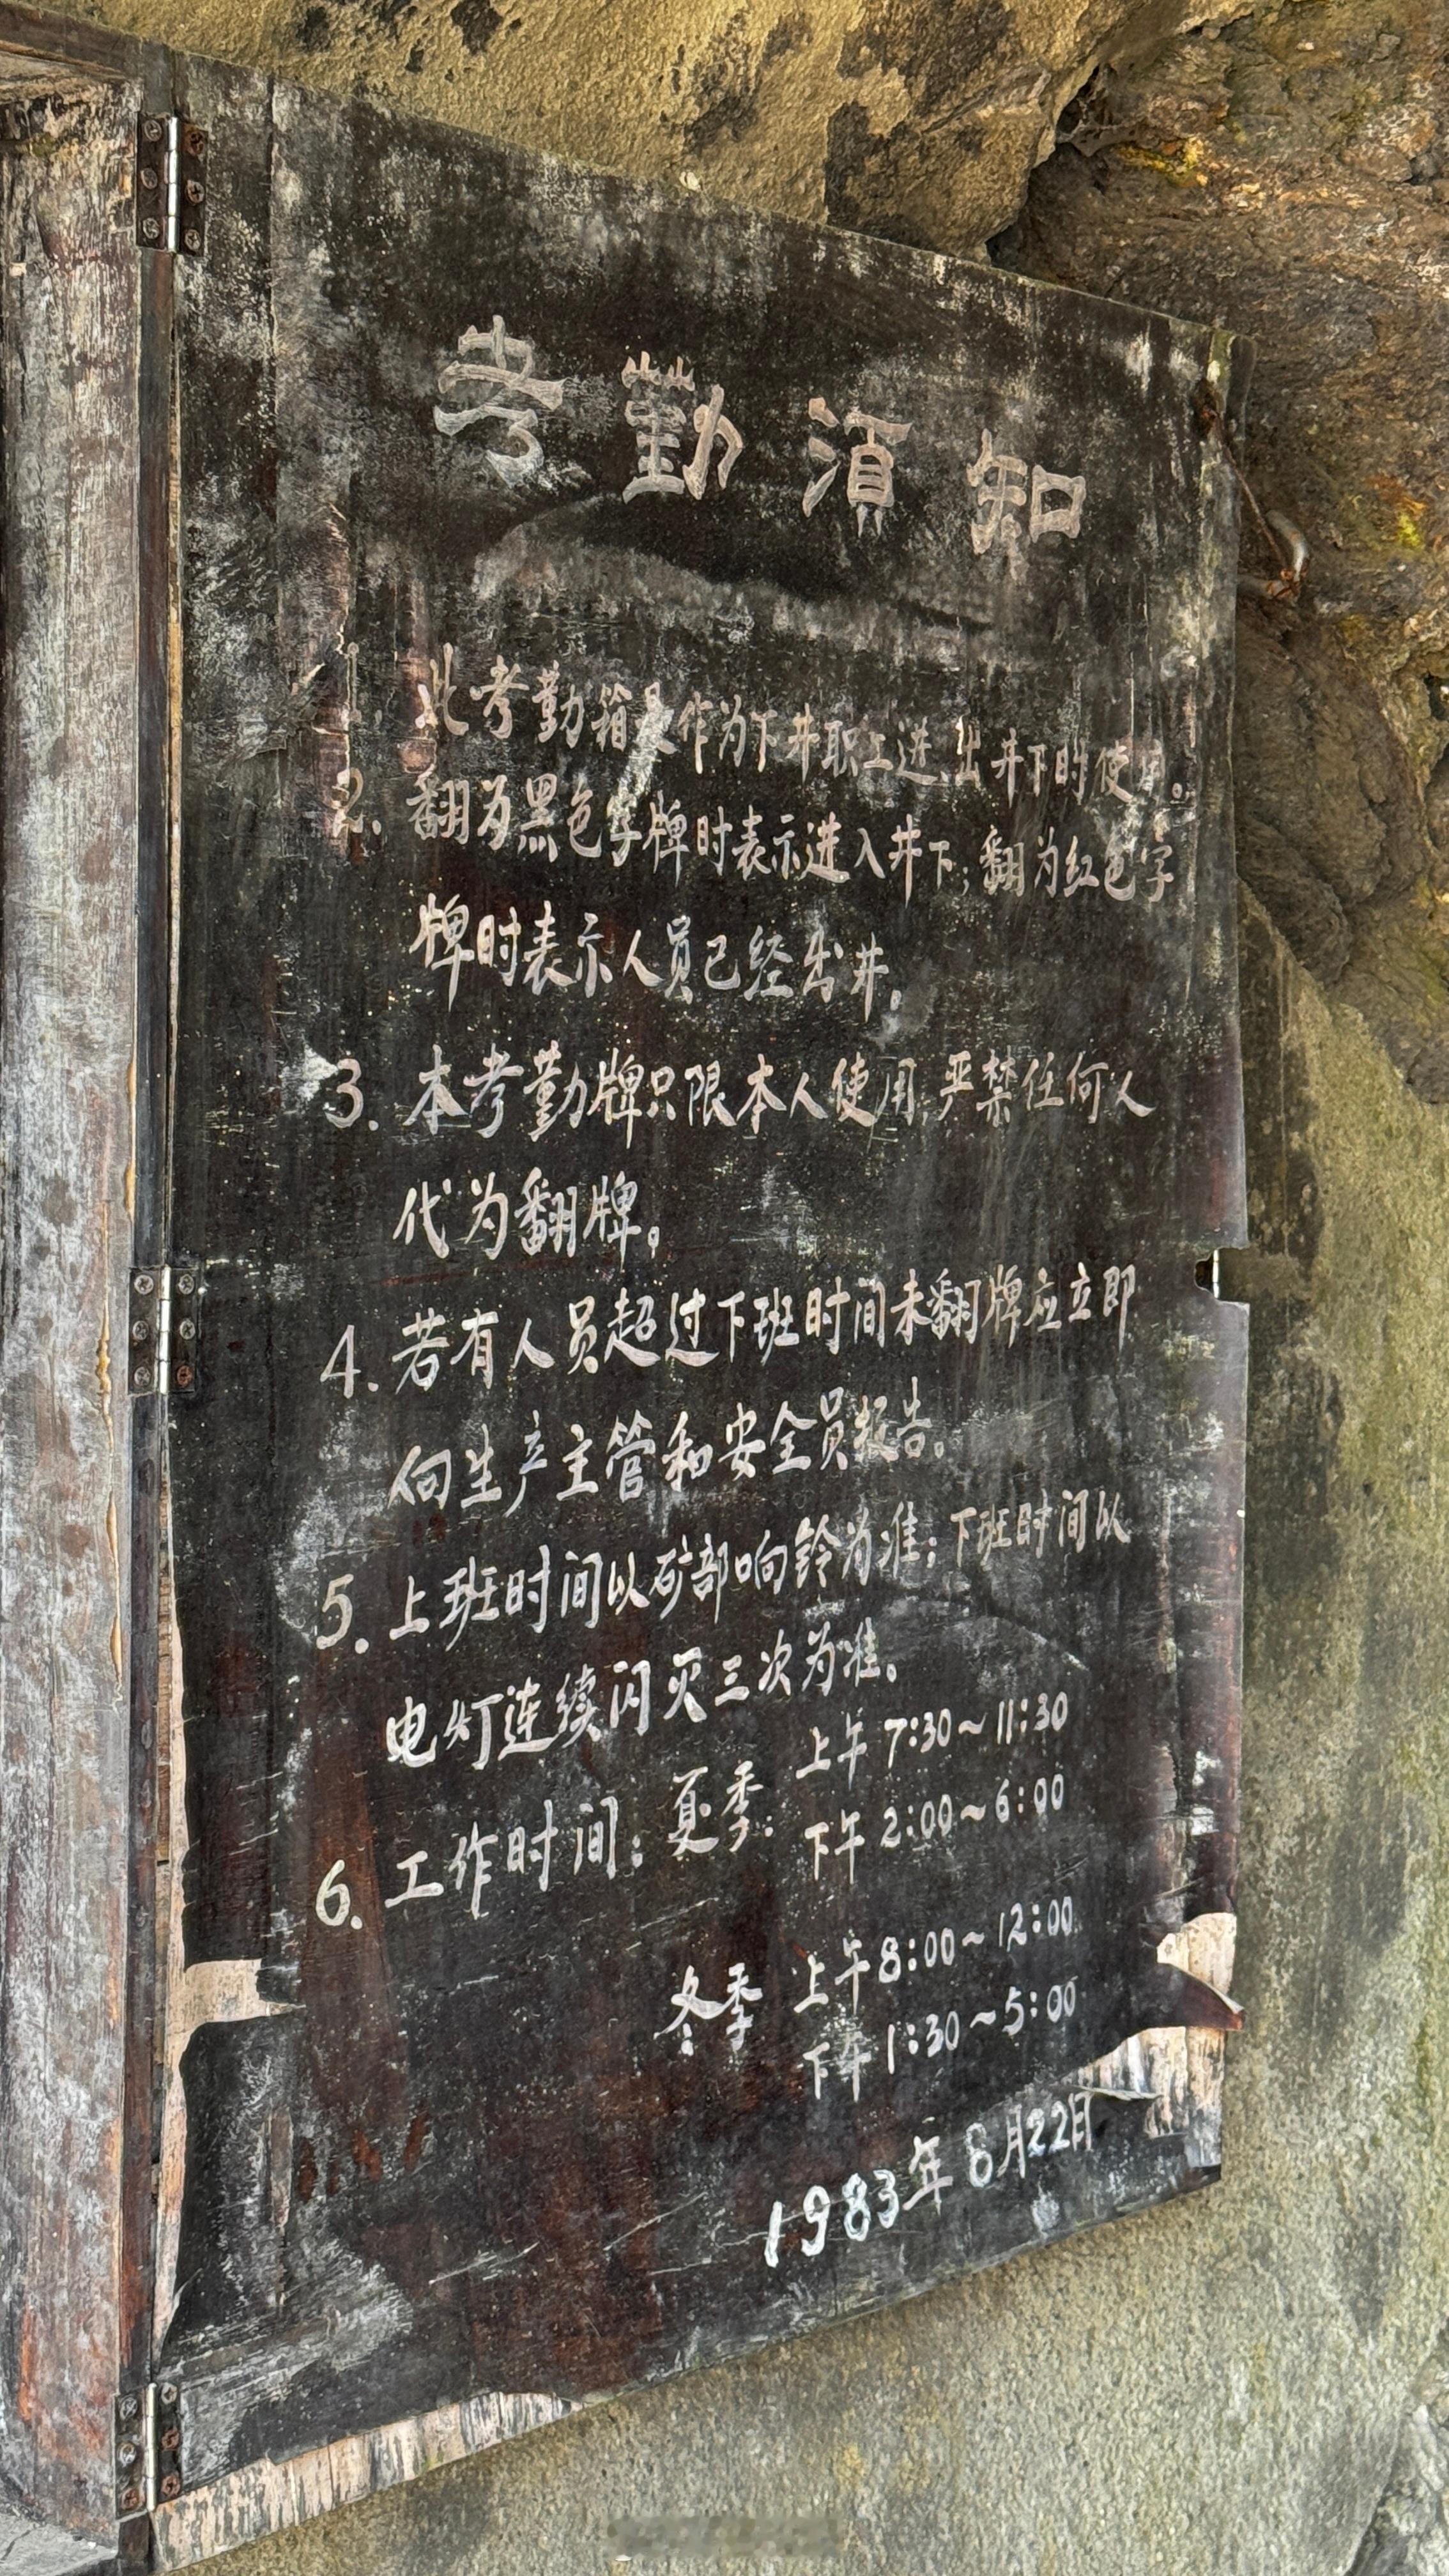 考勤须知
1. 此考勤箱只作为下井职工进出井下的使用。
2. 翻为黑色字牌时表示进入井下；翻为红色字
牌时表示人员已经出井。
3. 本考勤牌只限本人使用，严禁任何人
代为翻牌。
4. 若有人员超过下班时间未翻牌应立即
向生产主管和安全员报告。
5. 上班时间以矿部响铃为准；下班时间以
电灯连续闪灭三次为准。
6. 工作时间：夏季：上午 7:30~11:30
下午 2:00~6:00
冬季 上午 8:00~12:00
下午 1:30~5:00
1983年8月22日